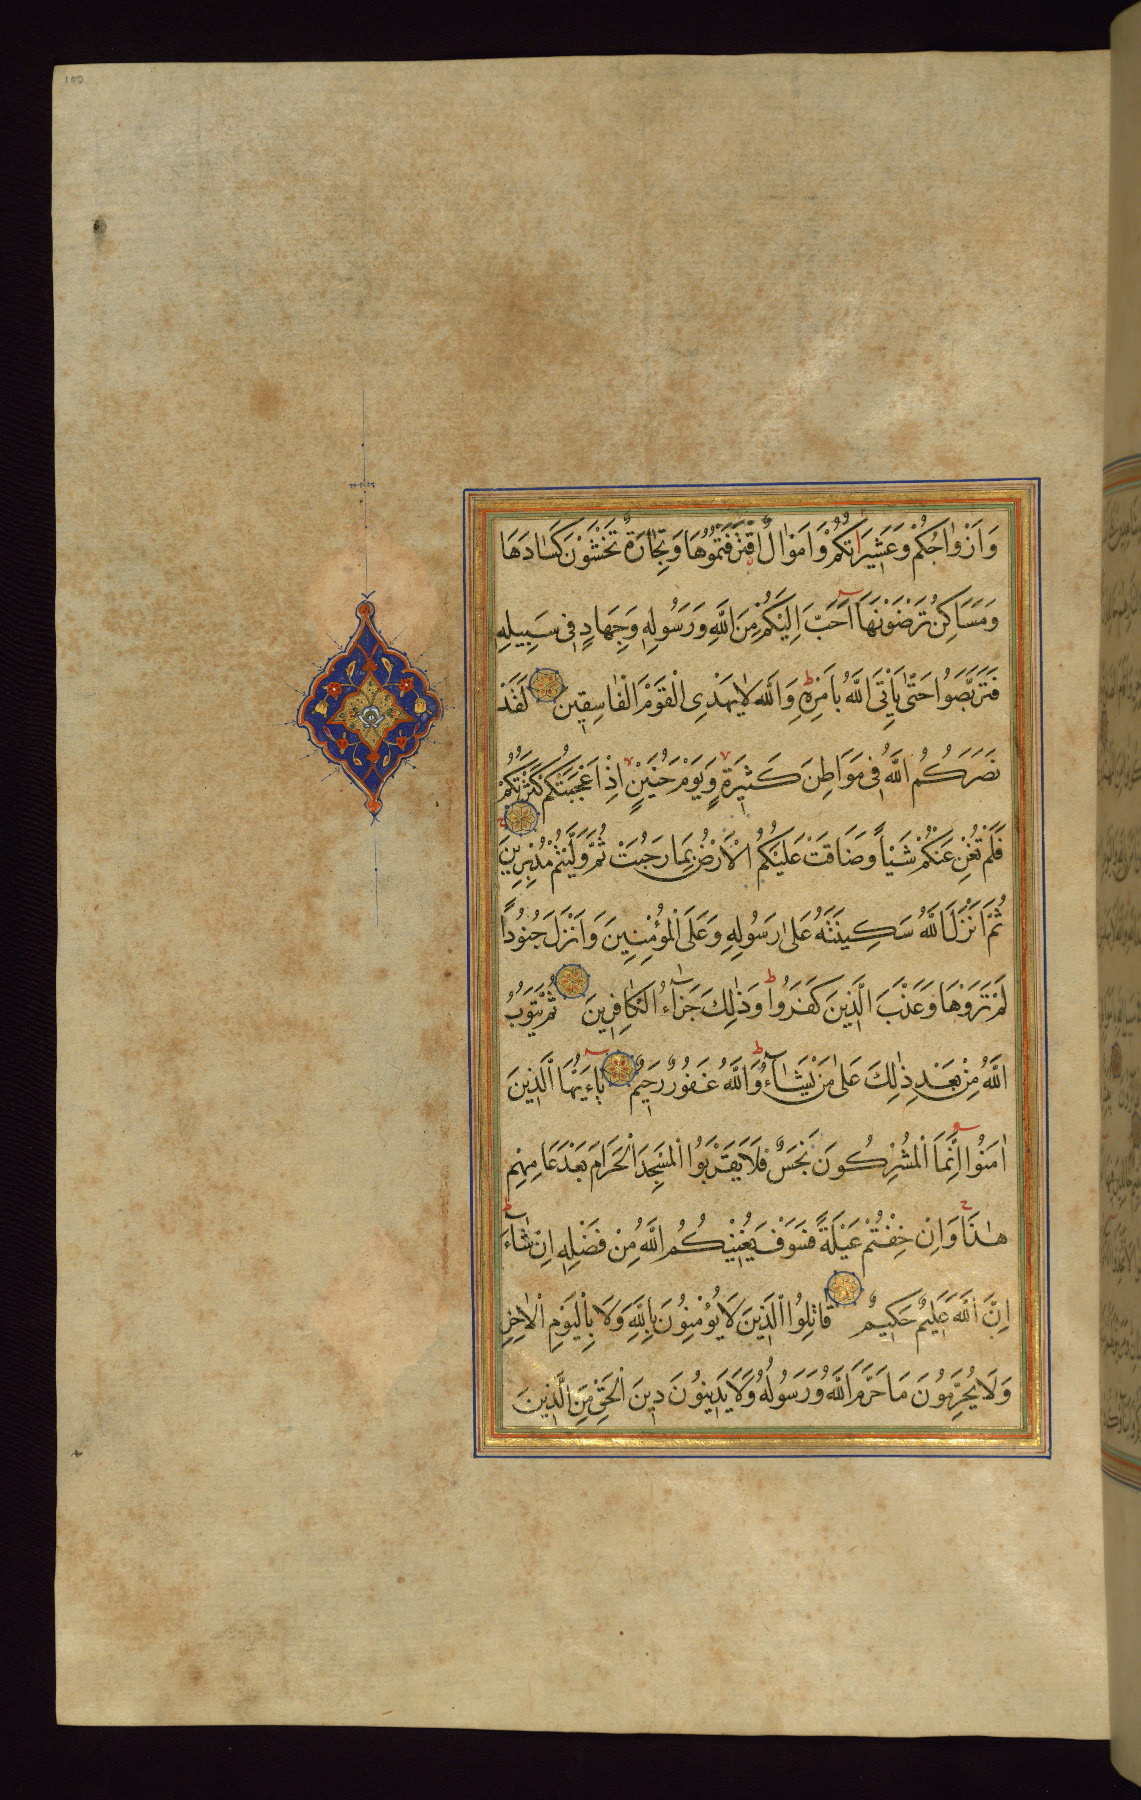 وَاَزْوَاجُكُمْ وَعَشِيرَاتُكُمْ وَاَمْوَالٌ اقْتَرَفْتُمُوهَا وَتِجَارَةٌ تَخْشَوْنَ كَسَادَهَا
وَمَسَاكِنُ تَرْضَوْنَهَا اَحَبَّ اِلَيْكُمْ مِنَ اللَّهِ وَرَسُولِهِ وَجِهَادٍ فِي سَبِيلِهِ
فَتَرَبَّصُوا حَتّٰى يَاْتِيَ اللَّهُ بِاَمْرِهِ وَاللَّهُ لَا يَهْدِى الْقَوْمَ الْفَاسِقِينَ لَقَدْ
نَصَرَكُمُ اللَّهُ فِي مَوَاطِنَ كَثِيرَةٍ وَيَوْمَ حُنَيْنٍ اِذْ اَعْجَبَتْكُمْ كَثْرَتُكُمْ
فَلَمْ تُغْنِ عَنْكُمْ شَيْئاً وَضَاقَتْ عَلَيْكُمُ الْاَرْضُ بِمَا رَحُبَتْ ثُمَّ وَلَّيْتُمْ مُدْبِرِينَ
ثُمَّ اَنْزَلَ اللَّهُ سَكِينَتَهُ عَلٰى رَسُولِهِ وَعَلَى الْمُؤْمِنِينَ وَاَنْزَلَ جُنُوداً
لَمْ تَرَوْهَا وَعَذَّبَ الَّذِينَ كَفَرُوا وَذٰلِكَ جَزَاءُ الْكَافِرِينَ ثُمَّ يَتُوبُ
اللَّهُ مِنْ بَعْدِ ذٰلِكَ عَلٰى مَنْ يَشَاءُ وَاللَّهُ غَفُورٌ رَحِيمٌ يَاءَيُّهَا الَّذِينَ
اٰمَنُوا اِنَّمَا الْمُشْرِكُونَ نَجَسٌ فَلَا يَقْرَبُوا الْمَسْجِدَ الْحَرَامَ بَعْدَ عَامِهِمْ
هٰذَا وَاِنْ خِفْتُمْ عَيْلَةً فَسَوْفَ يُغْنِيكُمُ اللَّهُ مِنْ فَضْلِهِ اِنْ شَاءَ
اِنَّ اللَّهَ عَلِيمٌ حَكِيمٌ قَاتِلُوا الَّذِينَ لَا يُؤْمِنُونَ بِاللَّهِ وَلَا بِالْيَوْمِ الْاٰخِرِ
وَلَا يُحَرِّمُونَ مَا حَرَّمَ اللَّهُ وَرَسُولُهُ وَلَا يَدِينُونَ دِينَ الْحَقِّ مِنَ الَّذِينَ